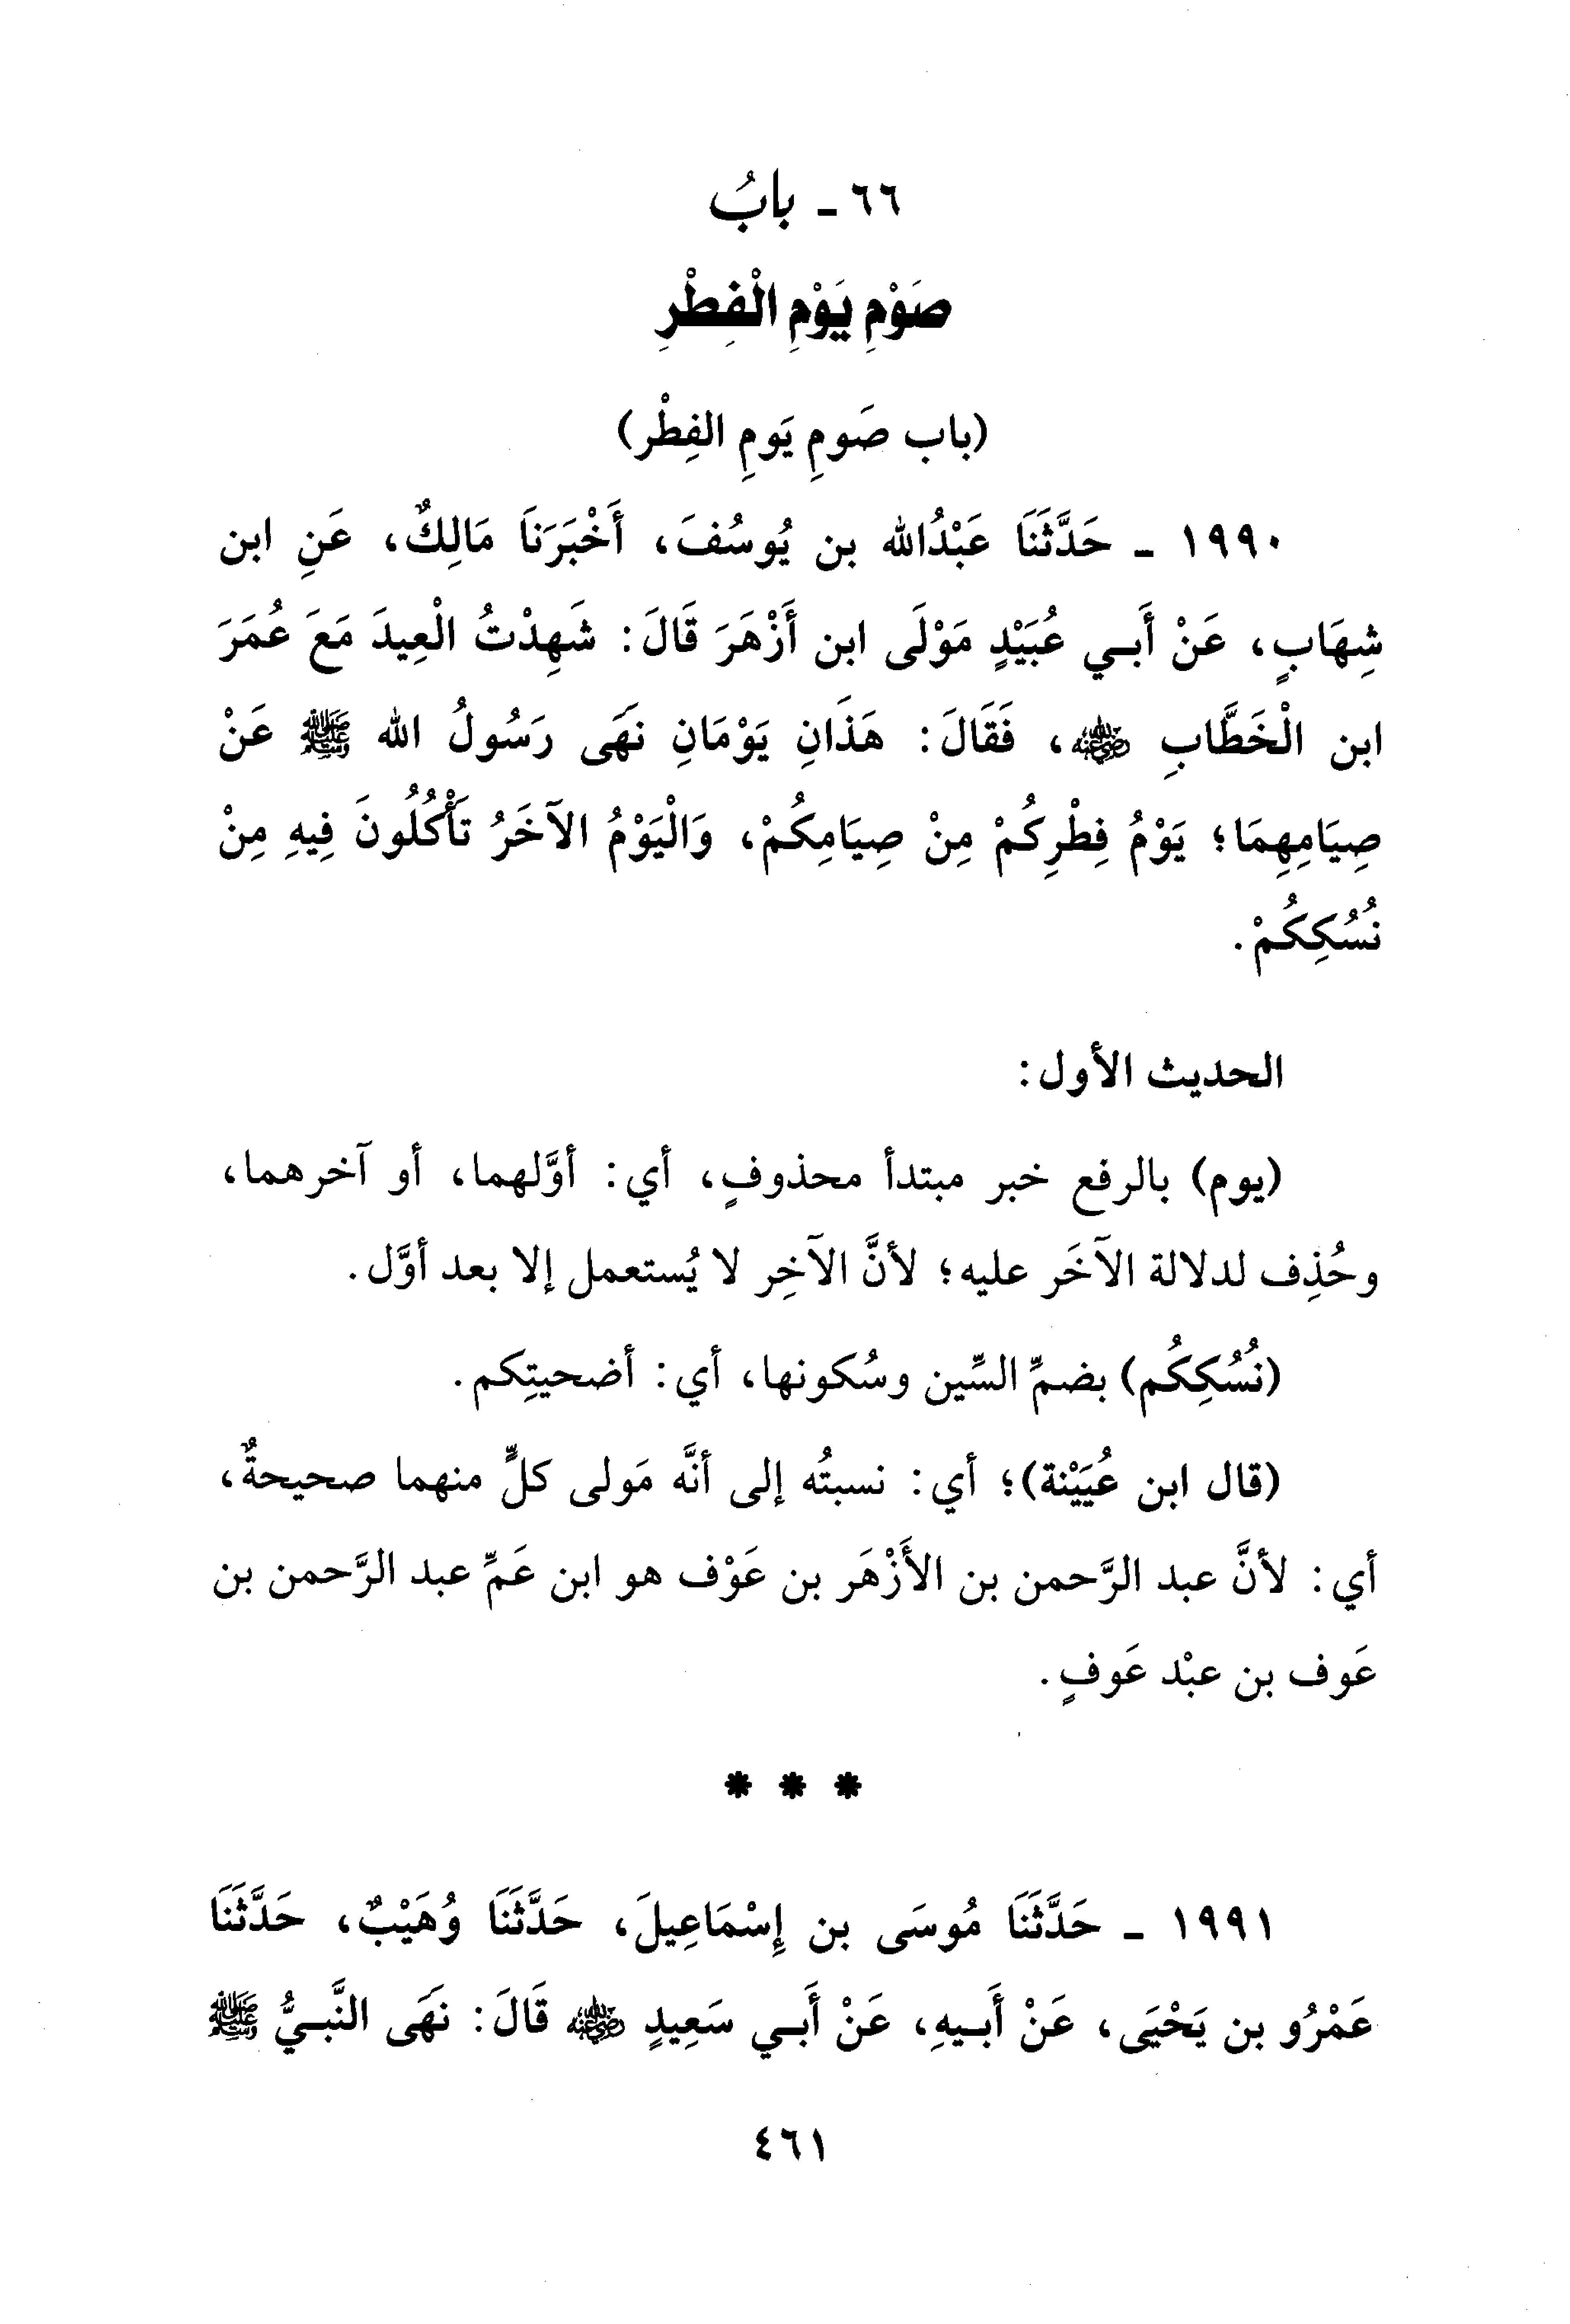 ٦٦ - بابُ
صَوْمِ يَوْمِ الْفِطْرِ
(باب صَومِ يَومِ الفِطْر)
١٩٩٠ - حَدَّثَنَا عَبْدُالله بن يُوسُفَ، أَخْبَرَنَا مَالِكٌ، عَنِ ابن
شِهَابٍ، عَنْ أَبِي عُبَيْدٍ مَوْلَى ابن أَزْهَرَ قَالَ: شَهِدْتُ الْعِيدَ مَعَ عُمَرَ
ابن الْخَطَّابِ رضي الله عنه، فَقَالَ: هَذَانِ يَوْمَانِ نَهَى رَسُولُ الله ﷺ عَنْ
صِيَامِهِمَا؛ يَوْمُ فِطْرِكُمْ مِنْ صِيَامِكُمْ، وَالْيَوْمُ الآخَرُ تَأْكُلُونَ فِيهِ مِنْ
نُسُكِكُمْ.
الحديث الأول:
(يوم) بالرفع خبر مبتدأ محذوفٍ، أي: أوَّلهما، أو آخرهما،
وحُذِف لدلالة الآخَر عليه؛ لأنَّ الآخِر لا يُستعمل إلا بعد أوَّل.
(نُسُكِكُم) بضمِّ السِّين وسُكونها، أي: أضحيتِكم.
(قال ابن عُيَيْنة)؛ أي: نسبتُه إلى أنَّه مَولى كلٍّ منهما صحيحةٌ،
أي: لأنَّ عبد الرَّحمن بن الأَزْهَر بن عَوْف هو ابن عَمِّ عبد الرَّحمن بن
عَوف بن عبْد عَوفٍ.
* * *
١٩٩١ - حَدَّثَنَا مُوسَى بن إِسْمَاعِيلَ، حَدَّثَنَا وُهَيْبٌ، حَدَّثَنَا
عَمْرُو بن يَحْيَى، عَنْ أَبِيهِ، عَنْ أَبِي سَعِيدٍ رضي الله عنه قَالَ: نَهَى النَّبِيُّ ﷺ
٤٦١